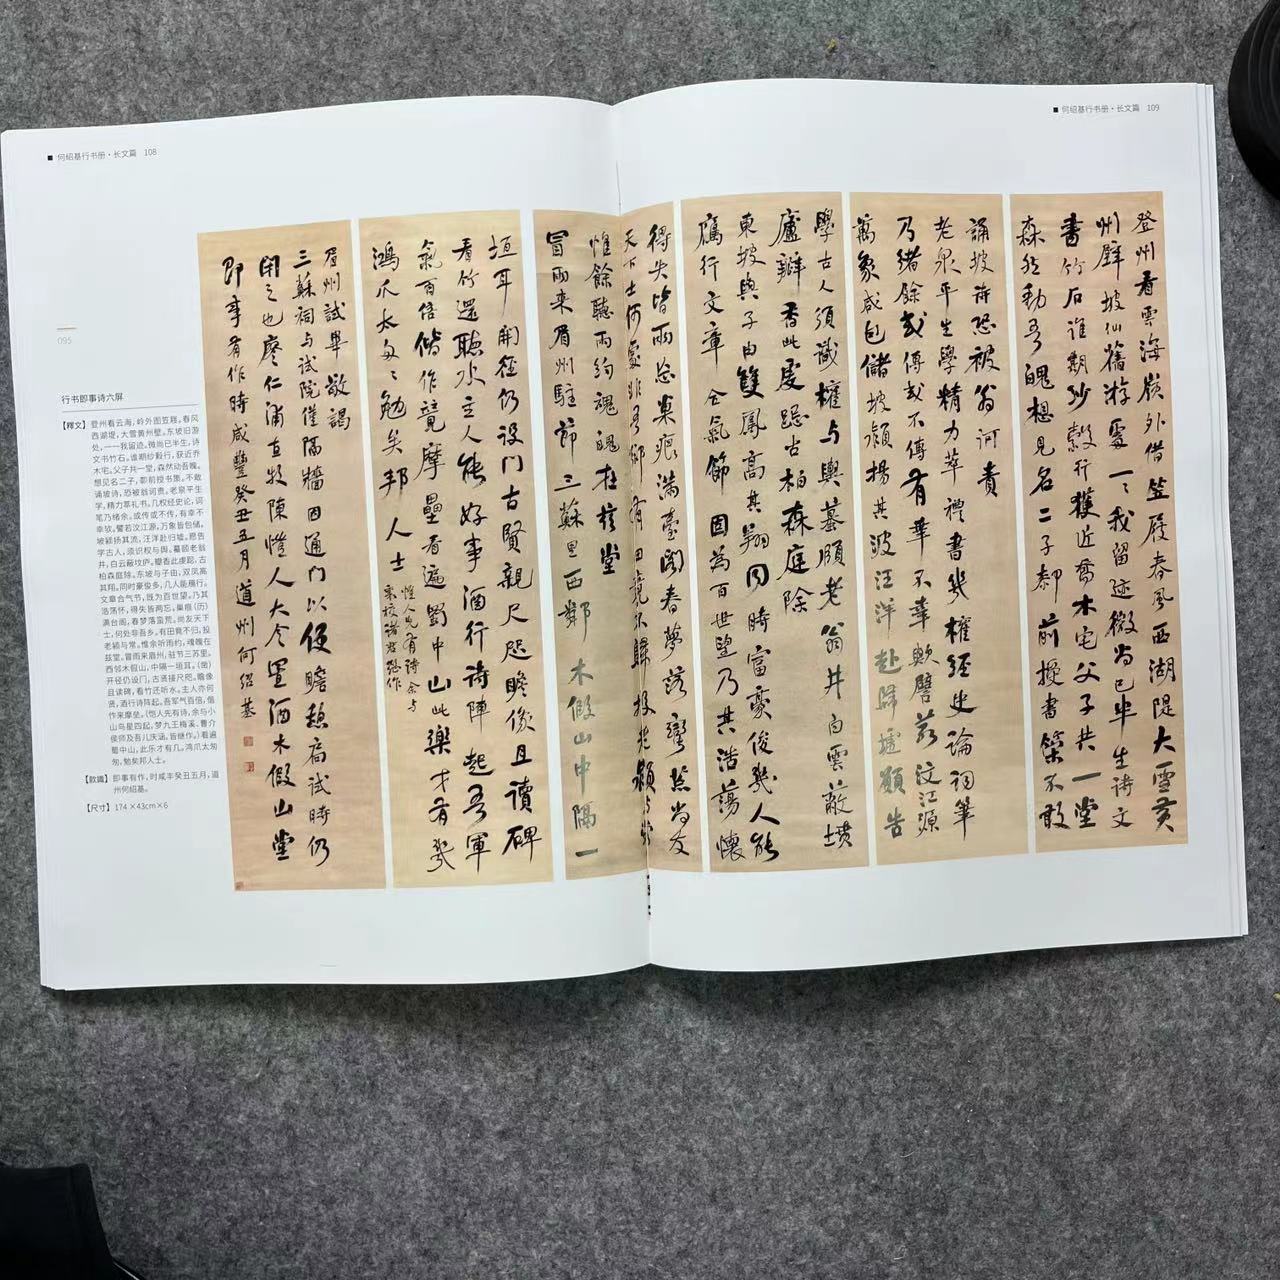 ■ 何绍基行书册·长文篇 108
■ 何绍基行书册·长文篇 109
登州看雲海嶺外借笠屐春風西湖隄大雪黃
州壁坡仙舊游處一〻我留迹微尚已半生詩文
書竹石誰期紗縠行獲近喬木宅父子共一堂
森然動吾魄想見名二子鄣前授書策不敢
誦坡詩恐被翁訶責
老泉平生學精力萃禮書幾權經史論詞筆
乃緒餘或傳或不傳有幸不幸歟譬若汶江源
萬象咸包儲坡潁揚其波汪洋赴歸墟願告
學古人須識權与輿墓頤老翁井白雲蔽墳
廬瓣香此虔跽古柏森庭除
東坡與子由雙鳳高其翔同時富豪俊幾人能
鴈行文章合氣節固為百世望乃其浩蕩懷
得失皆兩忘巢痕滿臺閣春夢落蠻荒尚友
天下士何處非吾鄉有田竟不歸投老潁与常
惟餘聽雨約魂魄在茲堂
冒雨來眉州駐節三蘇里西鄰木假山中隔一
垣耳開徑仍設门古賢親尺咫瞻像且讀碑
看竹還聽水主人能好事酒行詩陣起吾軍
氣百倍偕作競摩壘看遍蜀中山此樂才有幾
鴻爪太匆〻勉矣邦人士
愷人先有詩余与
來校諸君繼作
眉州試畢敬謁
三蘇祠与試院僅隔牆因通門以便瞻憩扃試時仍
閉之也廖仁浦直牧陳愷人大令置酒木假山堂
即事有作時咸豐癸丑五月道州何紹基
095
行书即事诗六屏
【釋文】登州看云海，岭外图笠屐。春风
西湖堤，大雪黄州壁。东坡旧游
处，一一我留迹。微尚已半生，诗
文书竹石。谁期纱縠行，获近乔
木宅。父子共一堂，森然动吾魄。
想见名二子，鄣前授书策。不敢
诵坡诗，恐被翁诃责。老泉平生
学，精力萃礼书。几权经史论，词
笔乃绪余。或传或不传，有幸不
幸欤。譬若汶江源，万象皆包储。
坡颍扬其流，汪洋赴归墟。愿告
学古人，须识权与舆。蟇颐老翁
井，白云蔽坟庐。瓣香此虔跽，古
柏森庭除。东坡与子由，双凤高
其翔。同时豪俊多，几人能雁行。
文章合气节，既为百世望。乃其
浩荡怀，得失皆两忘。巢痕（历）
满台阁，春梦落蛮荒。尚友天下
士，何处非吾乡。有田竟不归，投
老颍与常。惟余听雨约，魂魄在
兹堂。冒雨来眉州，驻节三苏里。
西邻木假山，中隔一垣耳。（凿）
开径仍设门，古贤接尺咫。瞻像
且读碑，看竹还听水。主人亦何
贤，酒行诗阵起。吾军气百倍，偕
作来摩垒。（恺人先有诗，余与
小山鸟星四起，梦九王梅溪、曹介
侯师及吾儿庆涵，皆继作。）看遍
蜀中山，此乐才有几。鸿爪太匆
匆，勉矣邦人士。
【款識】即事有作，时咸丰癸丑五月，道
州何绍基。
【尺寸】174×43cm×6